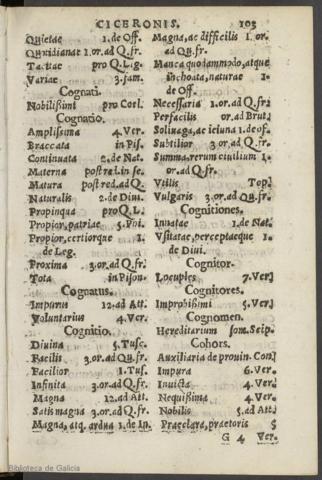 CICERONIS. 103
Quietae 1. de Off.
Quotidianae 1. or. ad Q. fr.
Tacitae pro Q. Lig.
Variae 3. fam.
Cognati.
Nobilißimi pro Coel.
Cognatio.
Amplißima 4. Ver.
Braccata in Pis.
Continuata 2. de Nat.
Materna post red. in se.
Matura post red. ad Q.
Naturalis 2. de Diui.
Propinqua pro Q. L.
Propior, patriae 5. Poi.
Propior, certiorque 1.
de Leg.
Proxima 3. or. ad Q. fr.
Tota in Pison.
Cognatus.
Impurus 12. ad Att.
Voluntarius 4. Ver.
Cognitio.
Diuina 5. Tusc.
Facilis 3. or. ad Qu. fr.
Facilior 1. Tus.
Infinita 3. or. ad Q. fr.
Magna 12. ad Att.
Satis magna 3. or. ad Q. fr.
Magna, atq. ardua 1. de In.
Magna, ac difficilis 1. or.
ad Qu. fr.
Manca quodammodo, atque
inchoata, naturae 1.
de Off.
Necessaria 1. or. ad Q. fr.
Perfacilis or. ad Brut.
Soliuaga, ac ieiuna 1. de of.
Subtilior 3. or. ad Q. fr.
Summa, rerum ciuilium 1.
or. ad Q. fr.
Vtilis Top.
Vulgaris 3. or. ad Qu. fr.
Cognitiones.
Innatae 1. de Nat.
Vsitatae, perceptaeque 1.
de Diui.
Cognitor.
Locuples 7. Ver.
Cognitores.
Improbißimi 5. Ver.
Cognomen.
Hereditarium som. Scip.
Cohors.
Auxiliaria de prouin. Con.
Impura 6. Ver.
Inuicta 4. Ver.
Nequißima 4. Ver.
Nobilis 5. ad Att.
Praeclara, praetoris 5
G 4 Ver.
Biblioteca de Galicia